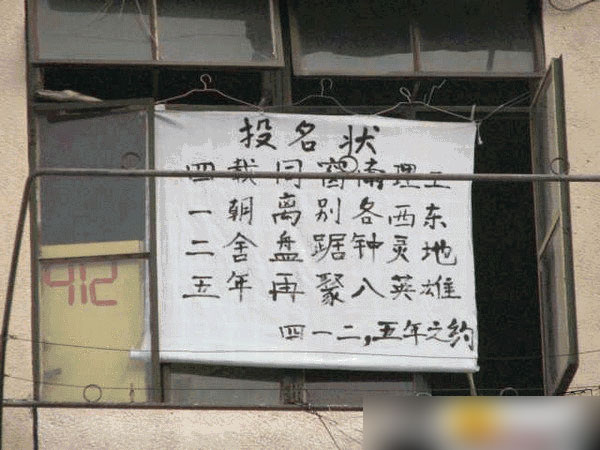 投名状
四载同窗南理工
一朝离别各西东
二舍盘踞钟灵地
五年再聚八英雄
四一二,五年之约
412